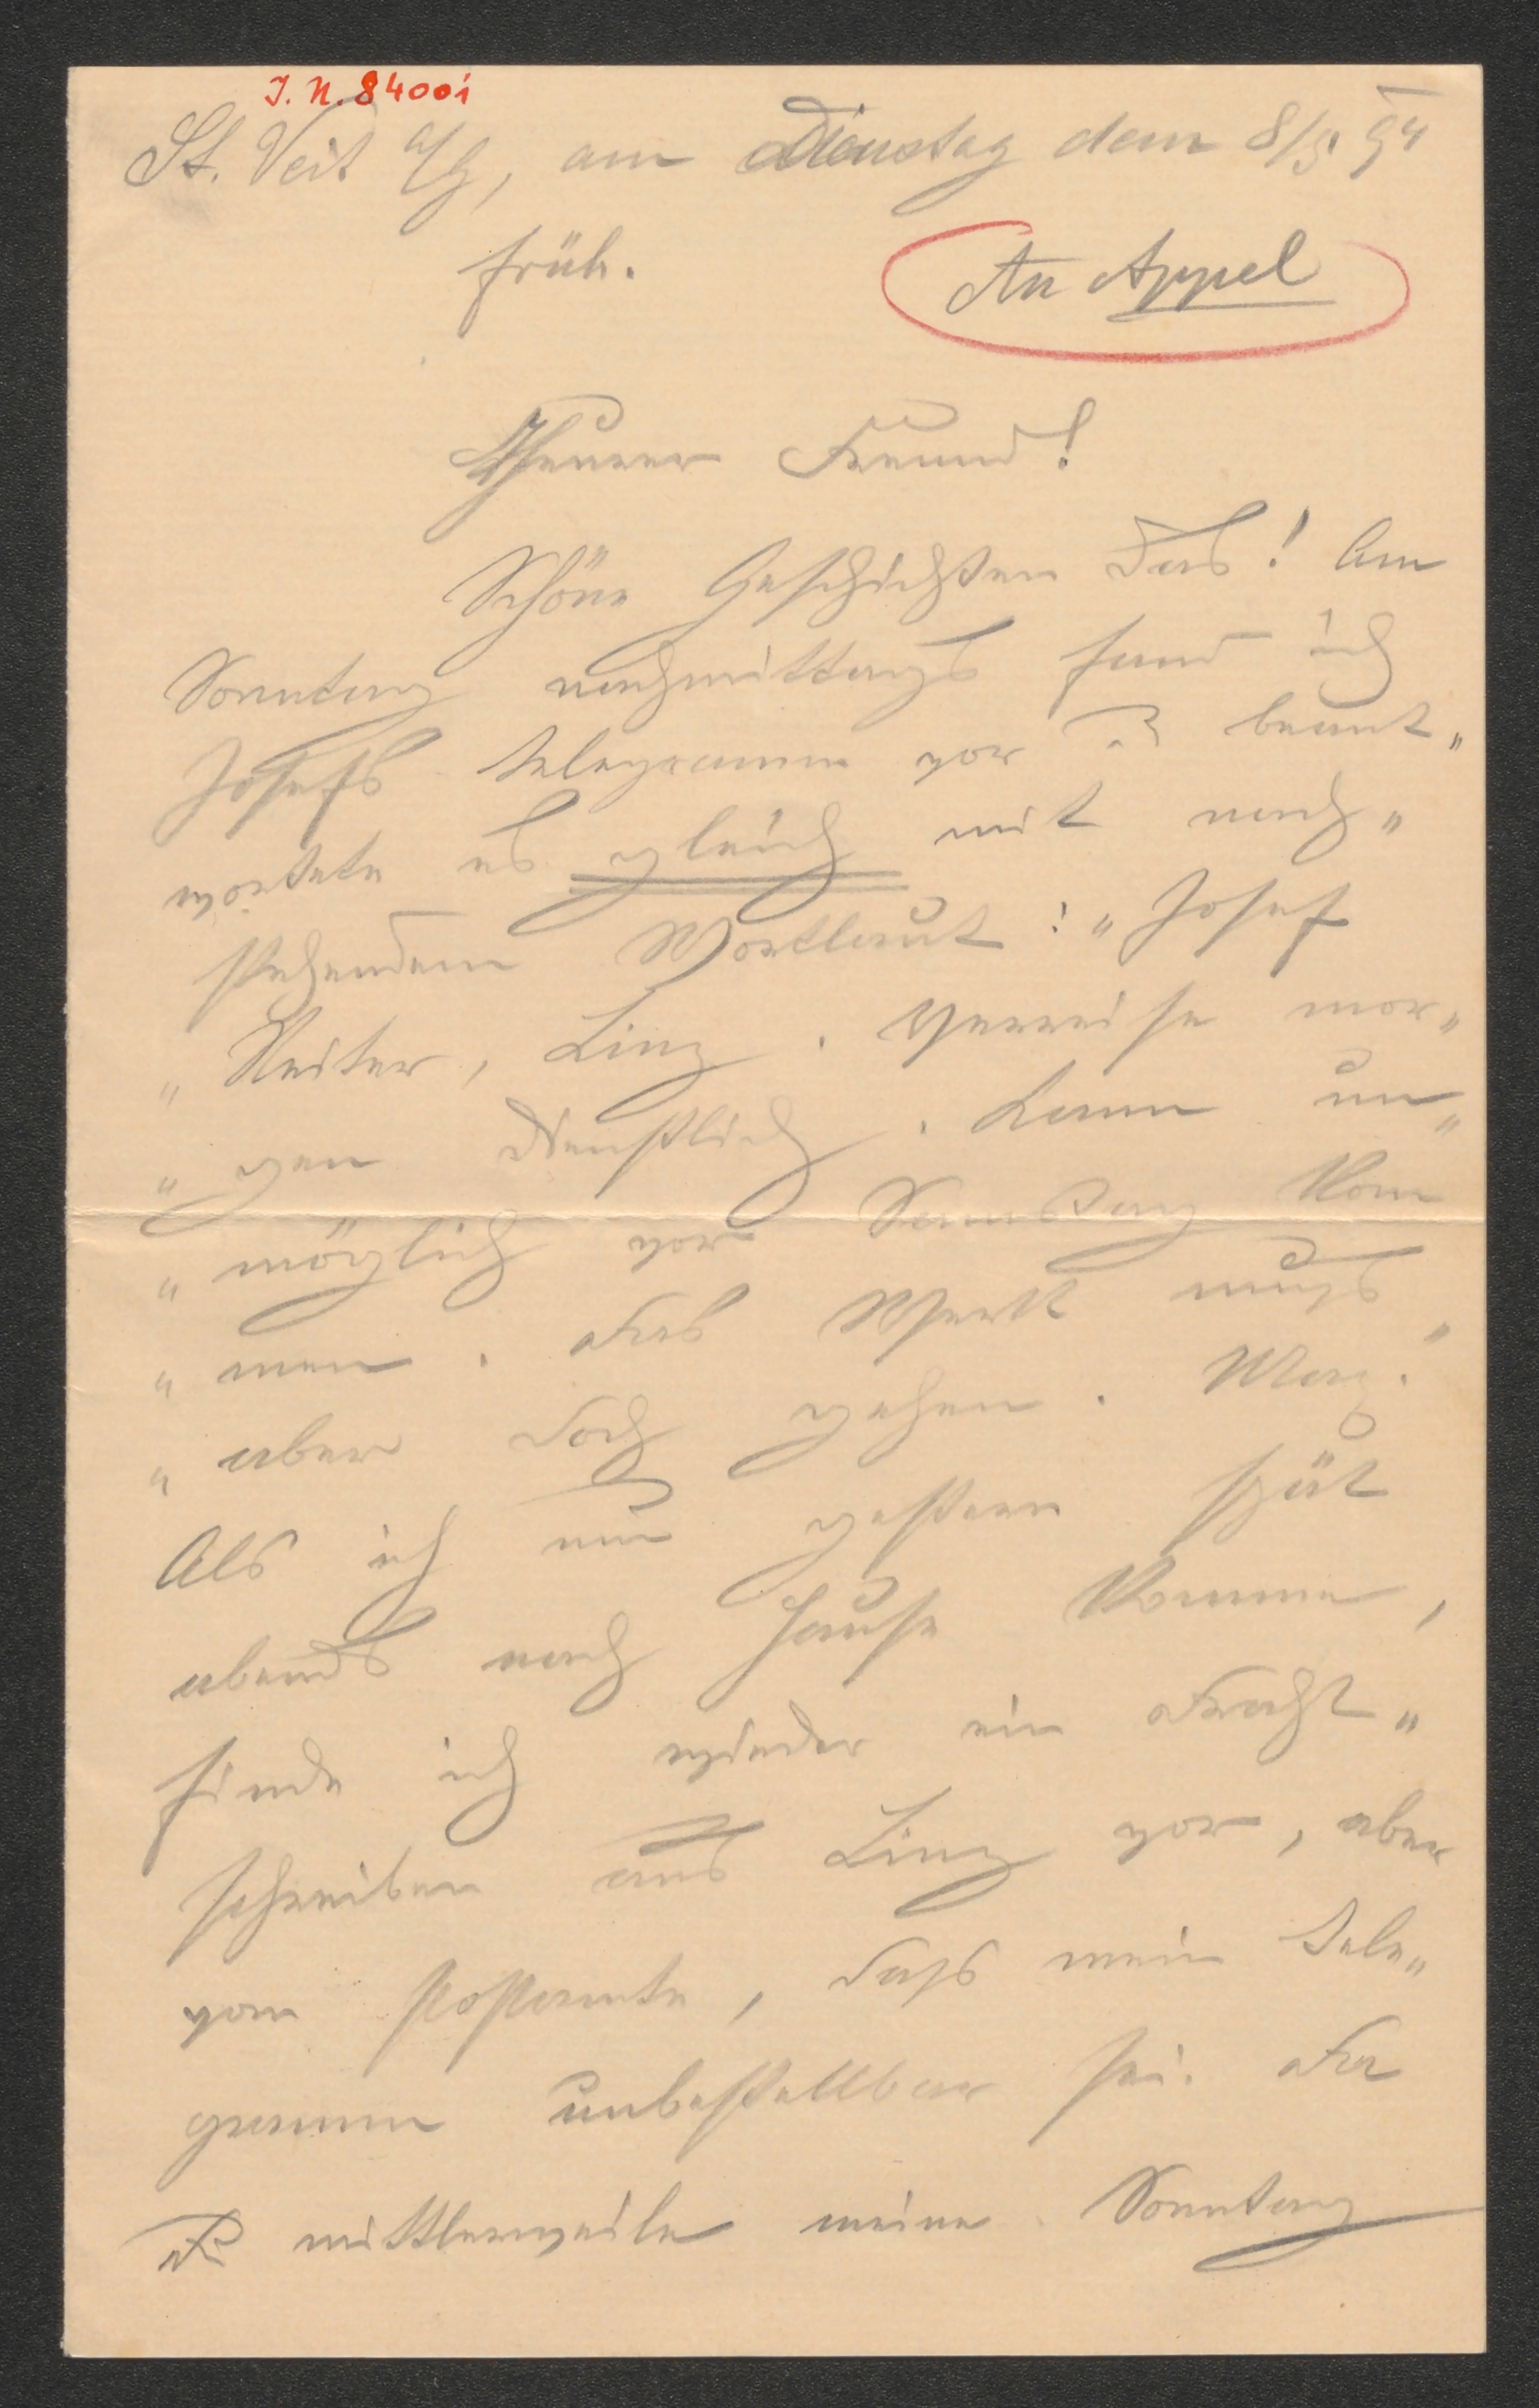 I. N. 84001
St. Veit a/G, am Dienstag dem 8/5 94
früh.
An Appel
Theurer Freund!
Schöne Geschichten das! Am
Sonntag nachmittags fand ich
Josefs Telegramm vor u beant„
wortete es gleich mit nach„
stehendem Wortlaut: „Josef
„Reiter, Linz. Verreise mor„
„gen dienstlich. Kann un„
„möglich vor Samstag kom
„men. Das Werk muß
„aber doch gehen. Max."
Als ich nun gestern spät
abends nach Hause komme,
finde ich wieder ein Draht„
schreiben aus Linz vor, aber
vom Postamte, daß mein Tele„
gramm unbestellbar sei. Da
Du mittlerweile meine Sonntag